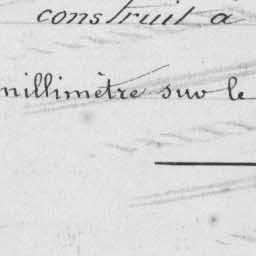 construit a
millimètre sur le